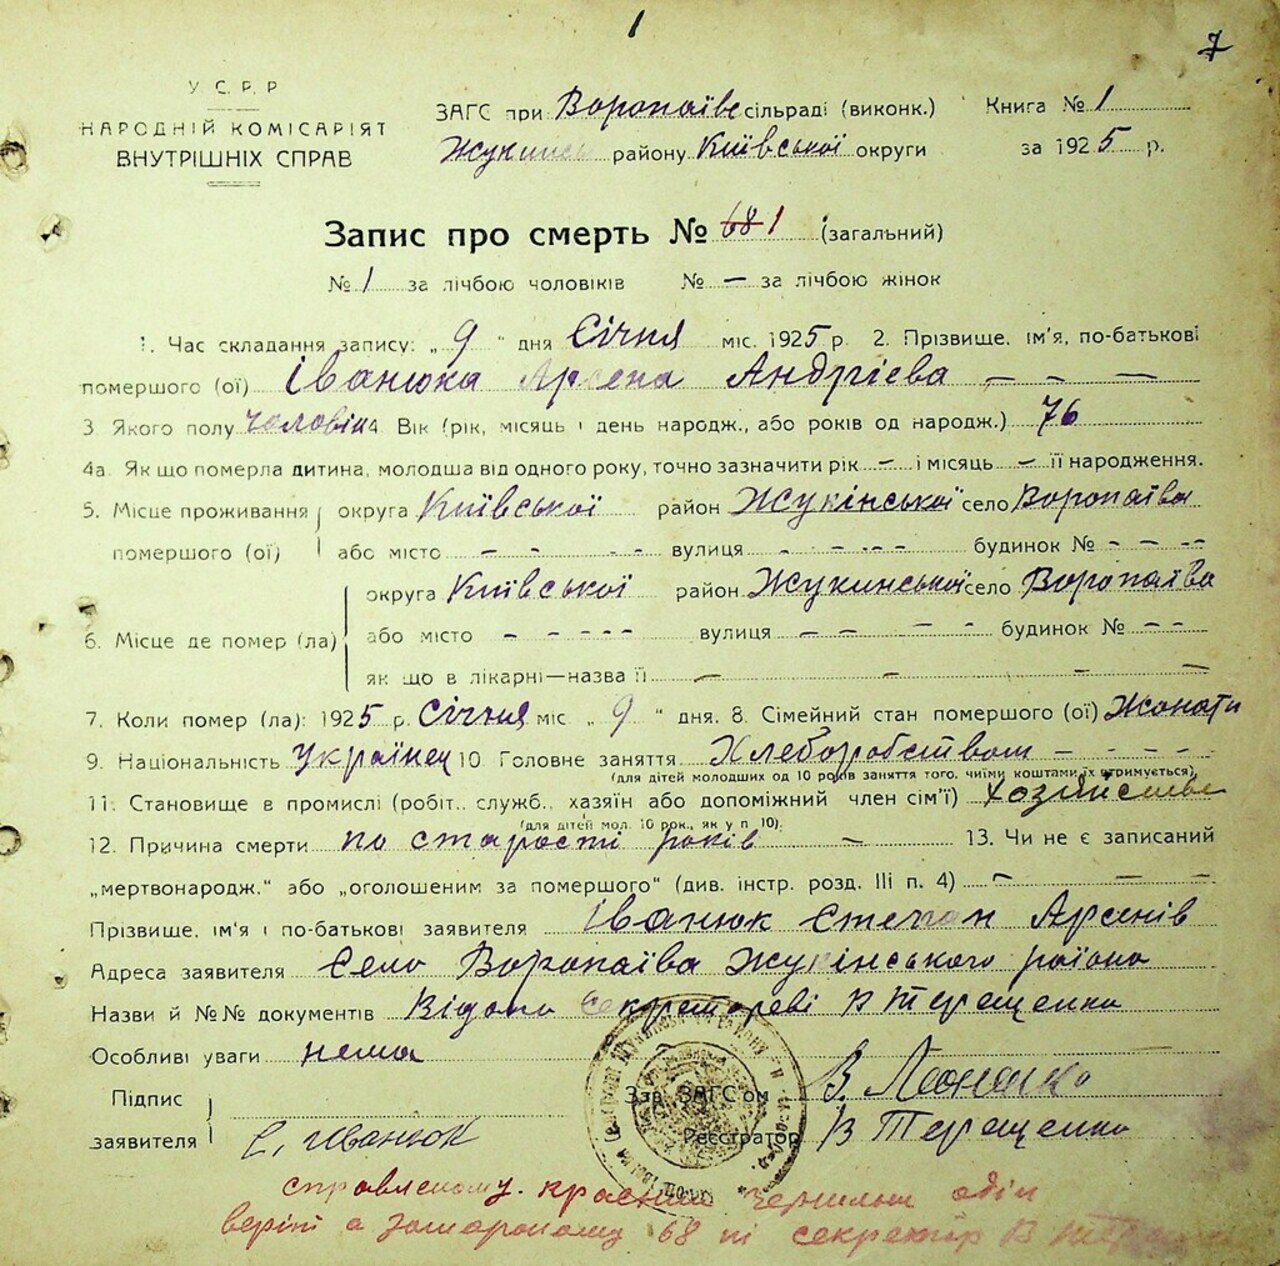 1
7
У С. Р. Р
НАРОДНІЙ КОМІСАРІЯТ
ВНУТРІШНІХ СПРАВ
ЗАГС при Воропаївс сільраді (виконк.) Книга № 1
Жукинсь району Київської округи за 1925 р.
Запис про смерть № 68 1 (загальний)
№ 1 за лічбою чоловіків № — за лічбою жінок
1. Час складання запису: „ 9 " дня Січня міс. 1925 р. 2. Прізвище, ім'я, по-батькові
помершого (ої) Іванюка Арсена Андрієва — — —
3 Якого полу чоловік 4. Вік (рік, місяць і день народж., або років од народж.) 76
4а. Як що померла дитина, молодша від одного року, точно зазначити рік — і місяць — її народження.
5. Місце проживання округа Київської район Жукінської село Воропаїва
помершого (ої) або місто - - - - вулиця - - - - - будинок № - - - -
округа Київської район Жукинської село Воропаїва
6. Місце де помер (ла) або місто - - - - - вулиця — — — - будинок № - -
як що в лікарні—назва її — — — —
7. Коли помер (ла): 1925 р. Січня міс. „ 9 " дня. 8. Сімейний стан помершого (ої) Жонати
9. Національність Українец 10 Головне заняття Хлеборобством - - - -
(для дітей молодших од 10 років заняття того, чиїми коштами їх отримується).
11. Становище в промислі (робіт., служб., хазяїн або допоміжний член сім'ї)
(для дітей мол. 10 рок., як у п 10).
12. Причина смерти по старості років — 13. Чи не є записаний
„мертвонародж." або „оголошеним за помершого" (див. інстр. розд. III п. 4) — — —
Прізвище, ім'я і по-батькові заявителя Іванюк Степан Арсенів
Адреса заявителя Село Воропаїва Жукінського района
Назви й №№ документів Відано Секретореві В Терещенко
Особливі уваги нема
Підпис Зав. ЗАГС'ом В.
заявителя С. Іванюк Реєстратор В Терещенко
68 секретар В